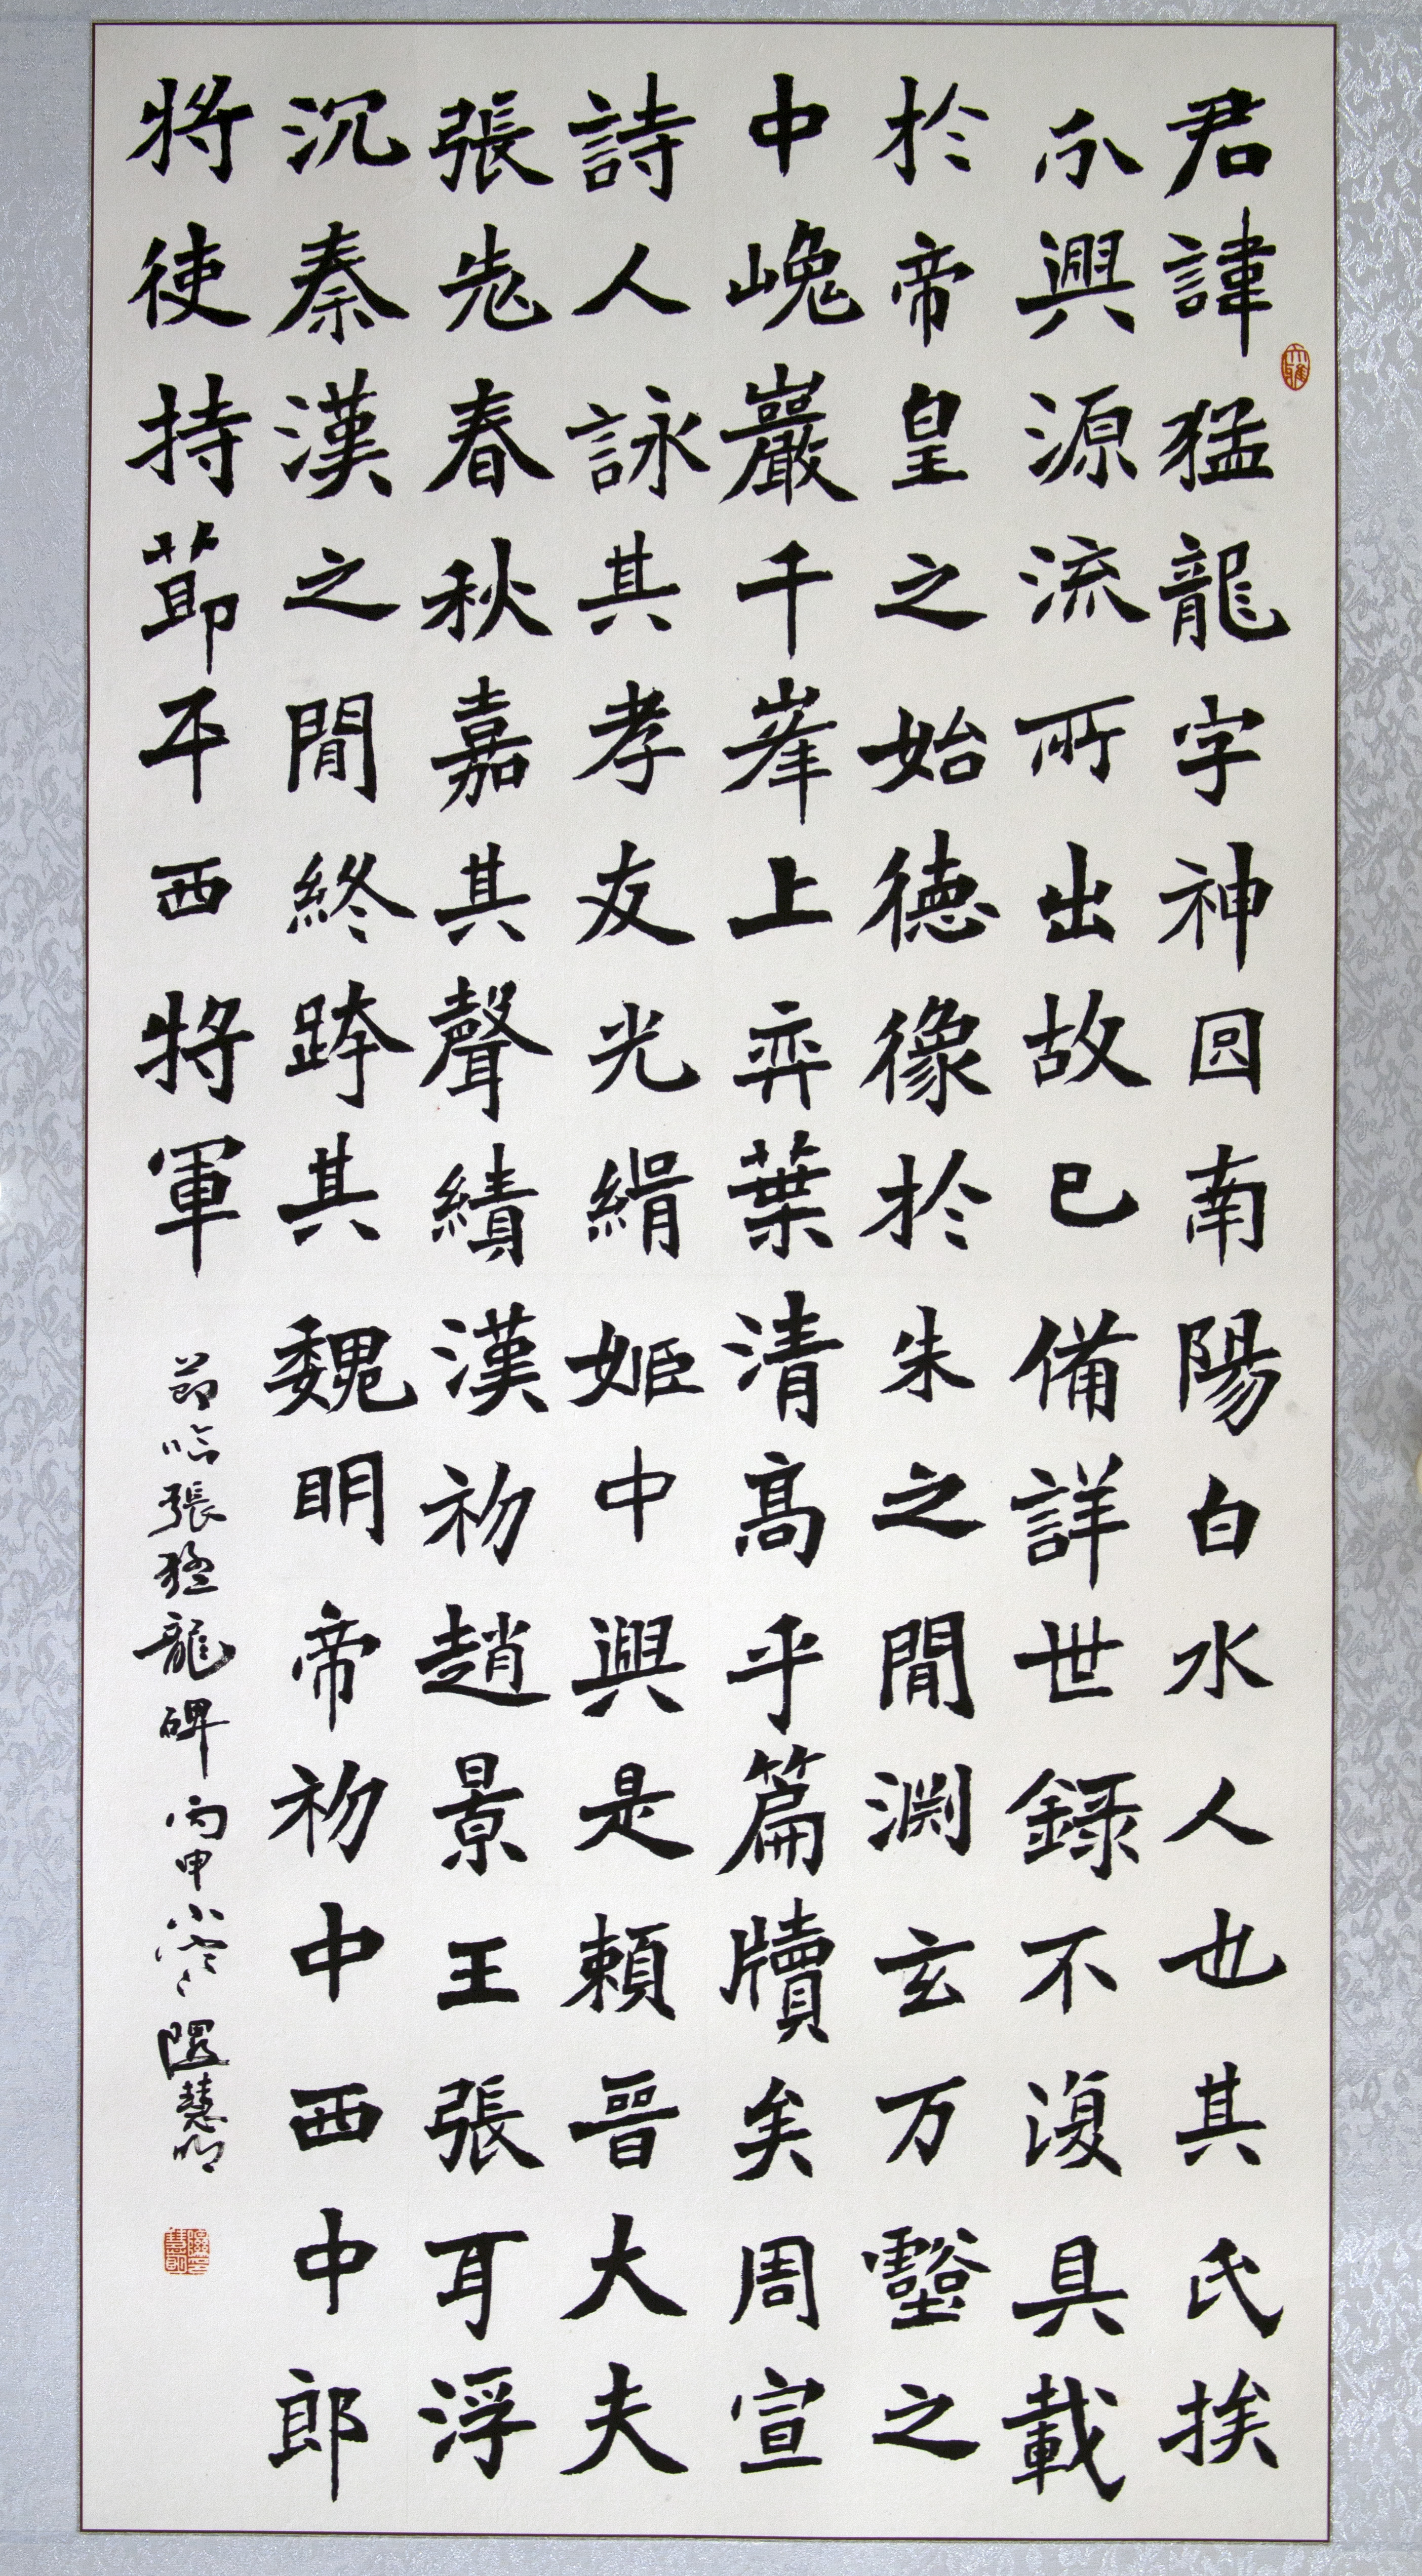 君諱猛龍字神囧南陽白水人也其氏挨
尒興源流所出故已備詳世録不復具載
於帝皇之始德像於朱之間淵玄万壑之
中巉巖千峯上弈葉清高乎篇牘矣周宣
詩人詠其孝友光緝姬中興是賴晉大夫
張老春秋嘉其聲績漢初趙景王張耳浮
沉秦漢之間終跨其魏明帝初中西中郎
將使持節平西將軍
節臨張猛龍碑丙申小雪隰慧明